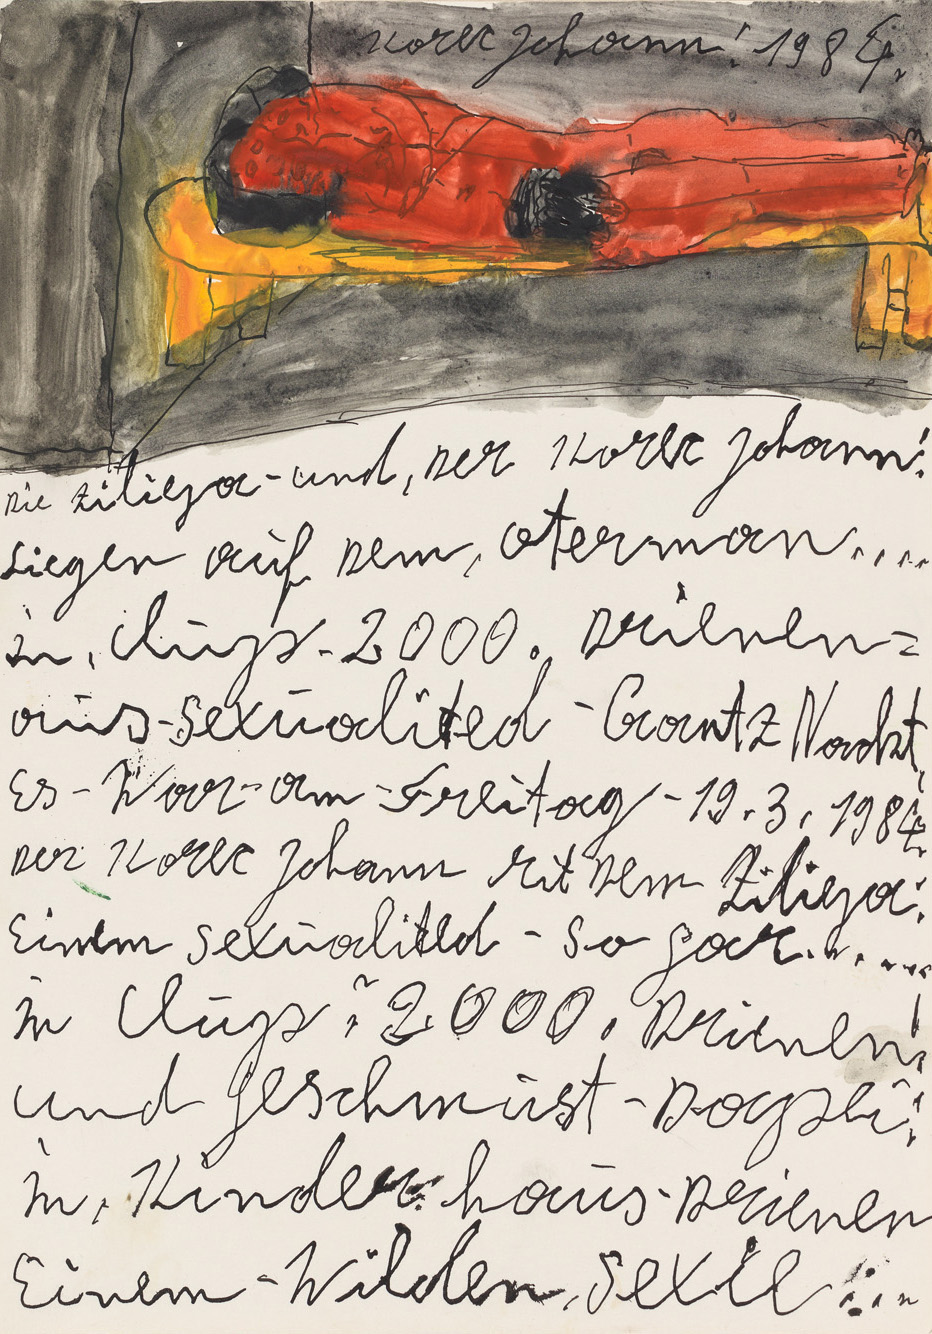 Korec Johann! 1984.
Die Ziliga-und, Der Korec Johann!
Liegen auf Dem, oterman....
in, Clups-2000. Drienen=
aus-sexualited-Gantz Nackt,
Es-War-am-Freitag-19.3.1984.
Der Korec Johann mit Dem Ziliga:
Einem sexualited-so gar.....
in Clups: 2000. Drienen!
und geschmust-Dogzei:
in, Kinder: haus-Drienen
Einem-Wilden, sexie:..